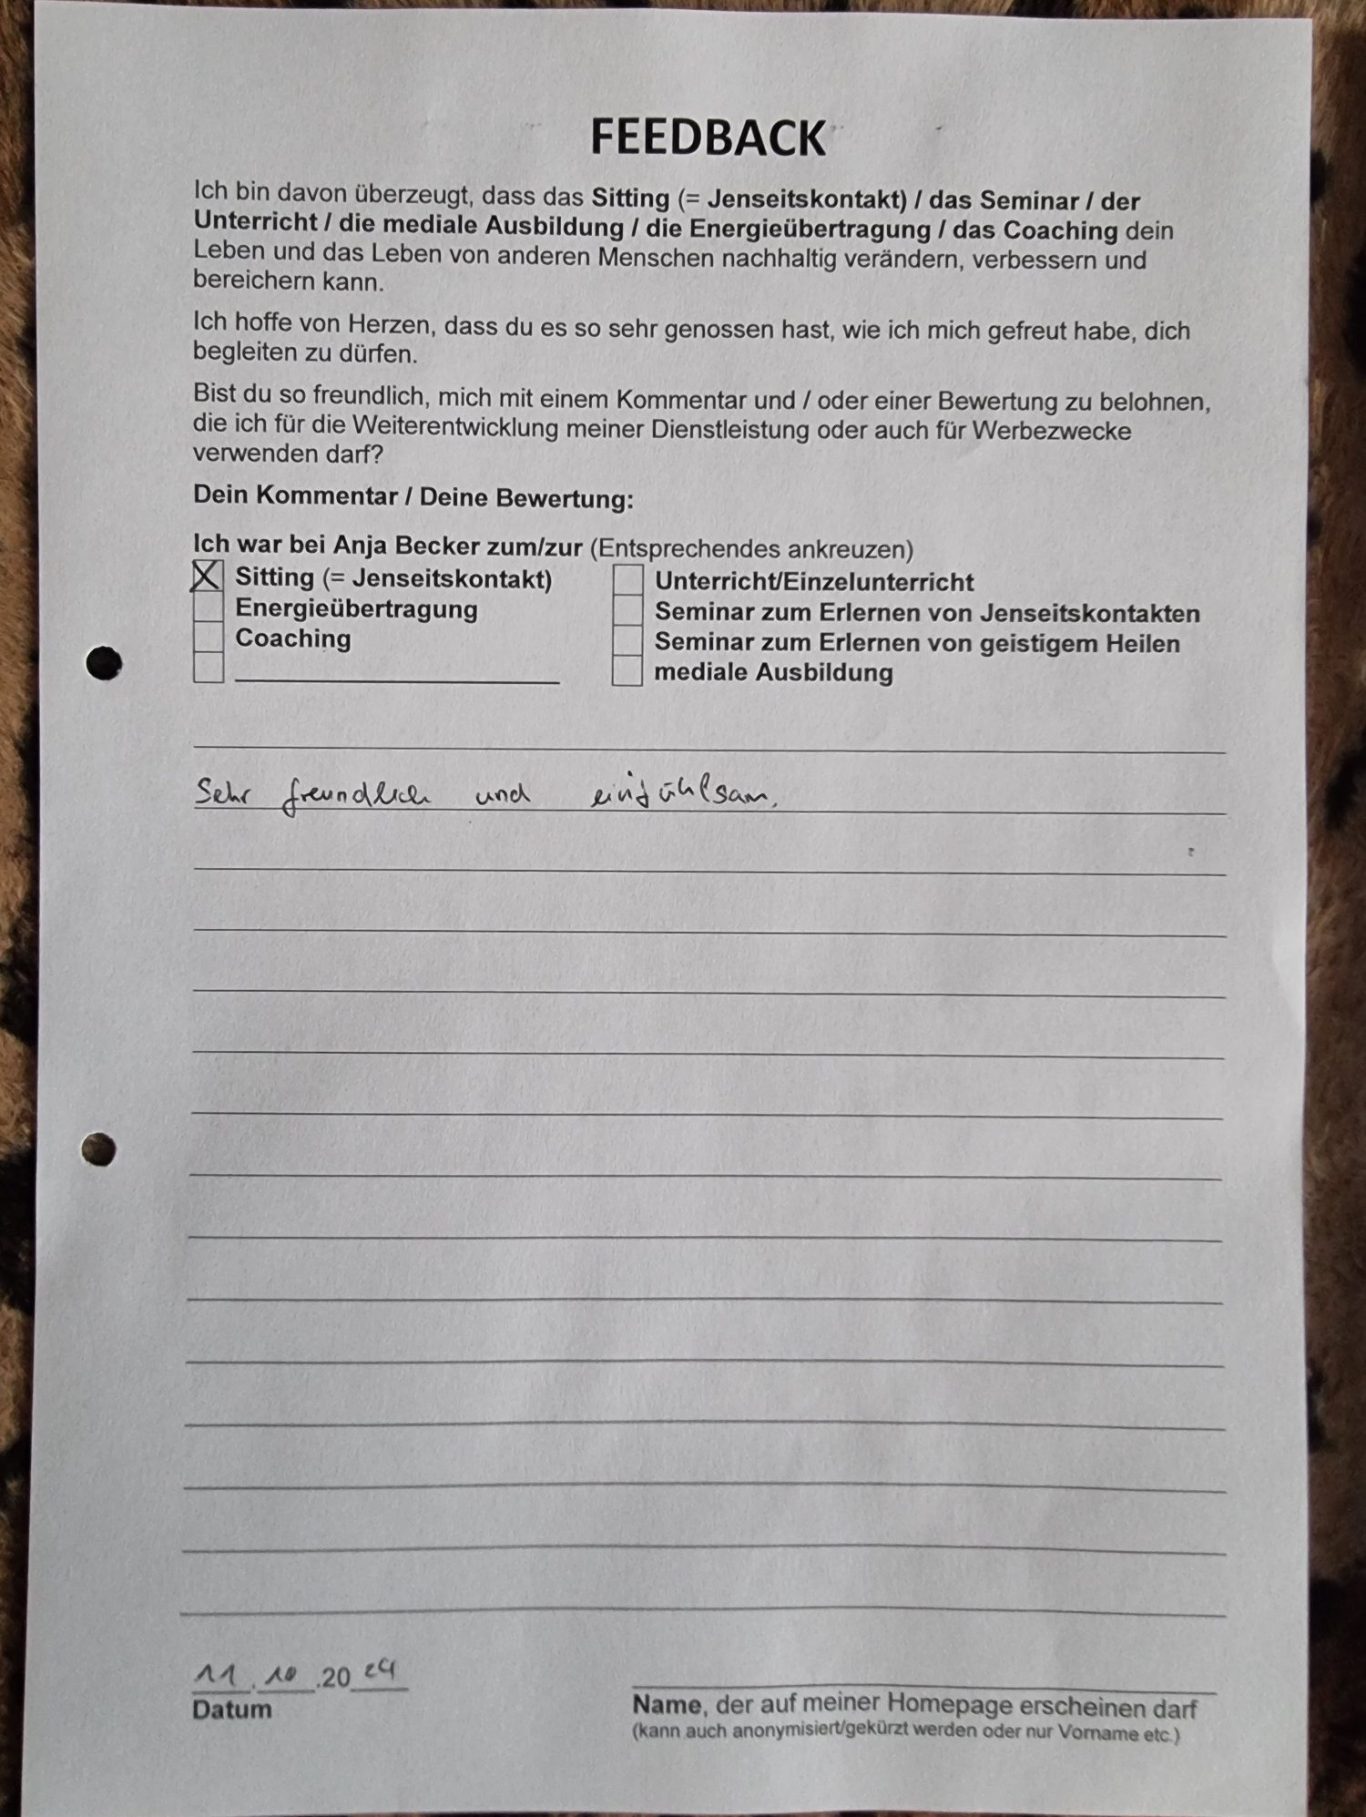 FEEDBACK
Ich bin davon überzeugt, dass das Sitting (= Jenseitskontakt) / das Seminar / der
Unterricht / die mediale Ausbildung / die Energieübertragung / das Coaching dein
Leben und das Leben von anderen Menschen nachhaltig verändern, verbessern und
bereichern kann.
Ich hoffe von Herzen, dass du es so sehr genossen hast, wie ich mich gefreut habe, dich
begleiten zu dürfen.
Bist du so freundlich, mich mit einem Kommentar und / oder einer Bewertung zu belohnen,
die ich für die Weiterentwicklung meiner Dienstleistung oder auch für Werbezwecke
verwenden darf?
Dein Kommentar / Deine Bewertung:
Ich war bei Anja Becker zum/zur (Entsprechendes ankreuzen)
X Sitting (= Jenseitskontakt) Unterricht/Einzelunterricht
Energieübertragung Seminar zum Erlernen von Jenseitskontakten
Coaching Seminar zum Erlernen von geistigem Heilen
mediale Ausbildung
Sehr freundlich und einfühlsam.
11.10.2024
Datum Name, der auf meiner Homepage erscheinen darf
(kann auch anonymisiert/gekürzt werden oder nur Vorname etc.)